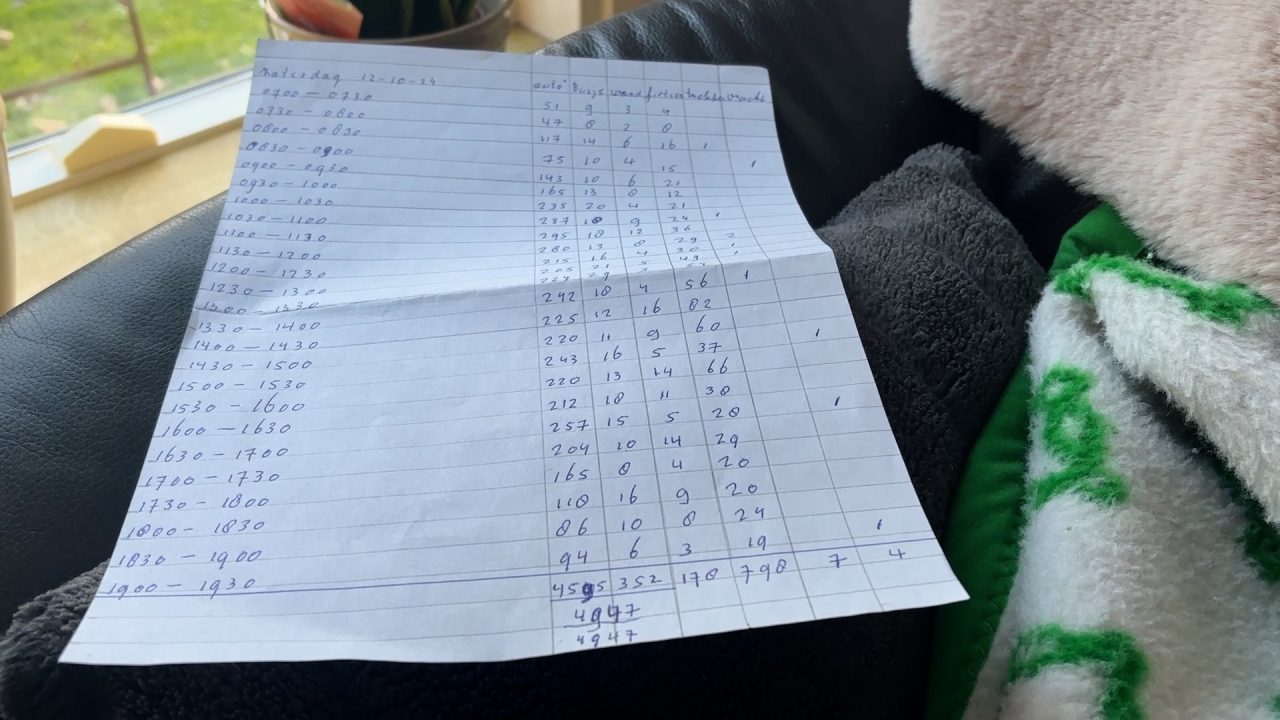 Zaterdag 12-10-24 auto's Busje wand fietsen
0700 – 0730 51 9 3 4
0730 – 0800 47 8 2 8
0800 – 0830 117 14 6 16 1
0830 – 0900 75 10 4 15 1
0900 – 0930 143 10 6 21
0930 – 1000 165 13 8 12
1000 – 1030 235 20 4 21
1030 – 1100 237 18 9 24 1
1100 – 1130 295 18 12 36
1130 – 1200 280 13 8 29 2
1200 – 1230 215 16 4 30 1
1230 – 1300 205 21 5 49 1
1300 – 1330 227 29
1330 – 1400 242 18 4 56 1
1400 – 1430 225 12 16 82
1430 – 1500 220 11 9 60
1500 – 1530 243 16 5 37 1
1530 – 1600 220 13 14 66
1600 – 1630 212 18 11 38
1630 – 1700 257 15 5 28 1
1700 – 1730 204 10 14 29
1730 – 1800 165 8 4 20
1800 – 1830 118 16 9 20
1830 – 1900 86 10 8 24
1900 – 1930 94 6 3 19 1
4595 352 178 798 7 4
4947
4947